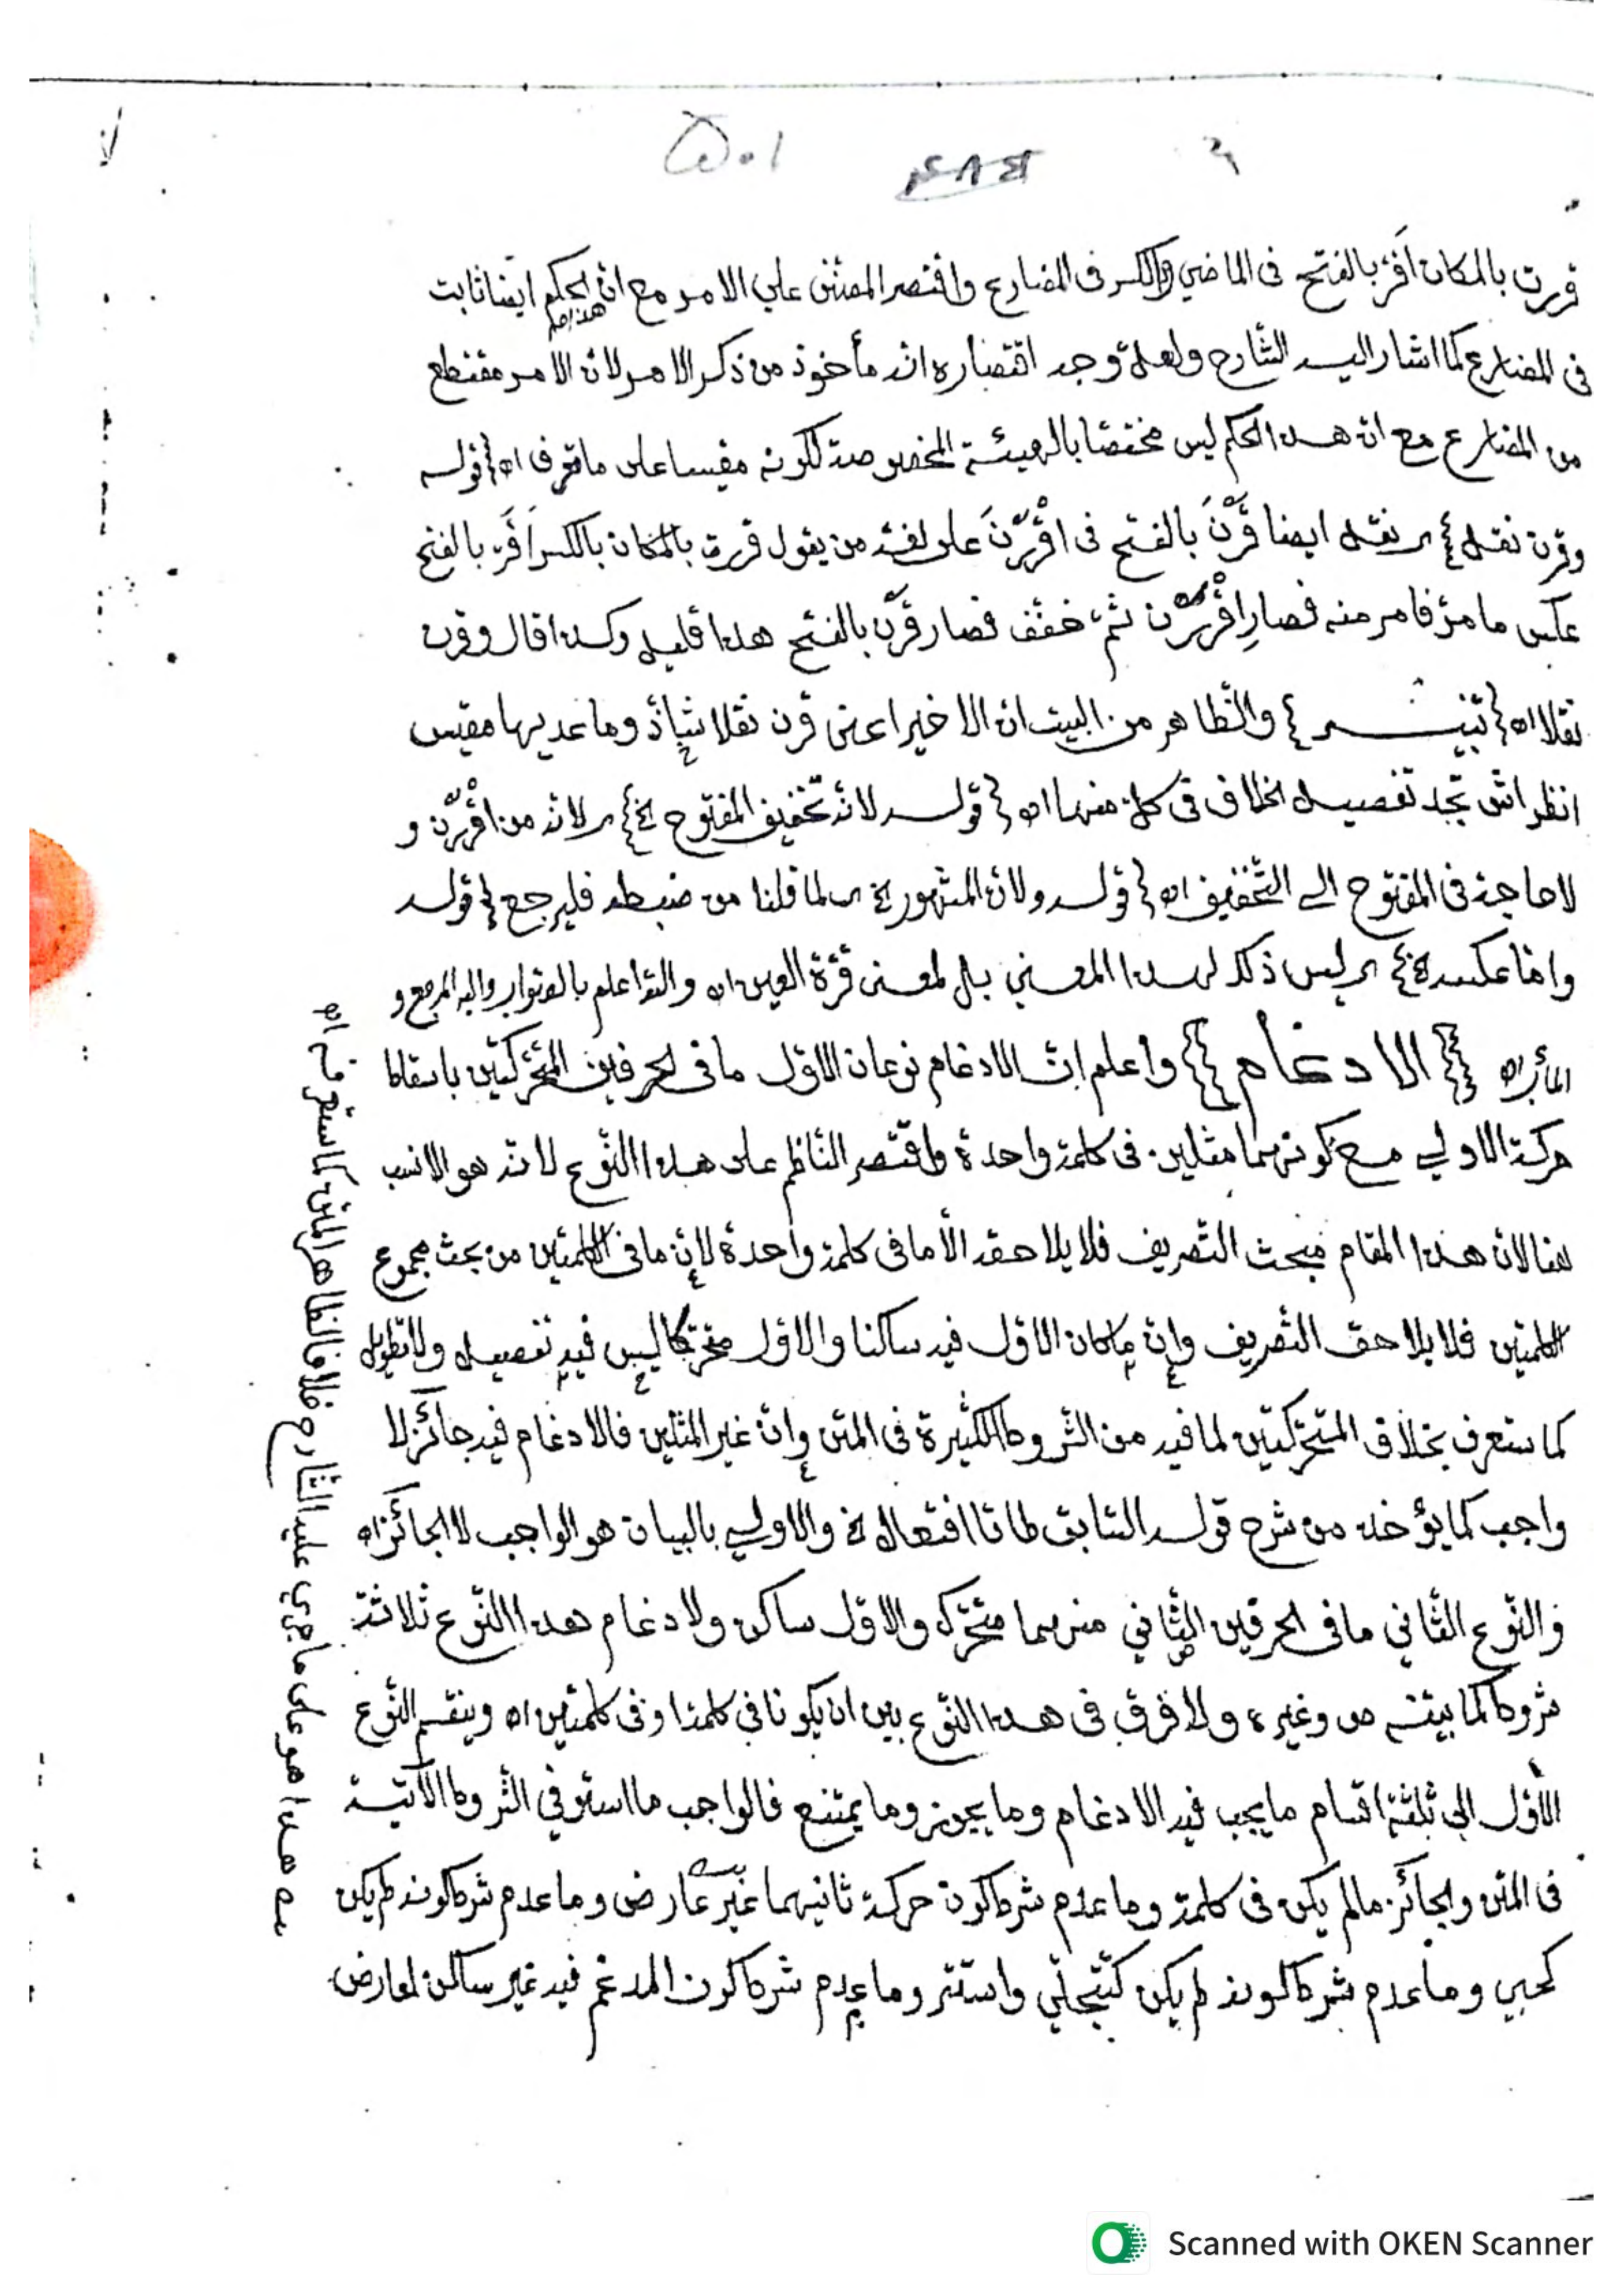 ٥٠١
قررت بالمكان اَقرّ بالفتح فى الماضي والكسر فى المضارع واقتصر المصنّف علي الامر مع انّ هذا الحكم ايضا ثابت
فى المضارع كما اشار اليه الشّارح ولعلّ وجه اقتصاره انّه مأخوذ من ذكر الامر لانّ الامر مقتطع
من المضارع مع انّ هذا الحكم ليس مختصّا بالهيئة المخصوصة لكونه مقيسا على ما تقرّر اه {قوله
وقرن نقل} اى نقل ايضا قَرْنَ بالفتح فى اقْرَرْنَ على لغة من يقول قررت بالمكان بالكسر اَقَرّ بالفتح
عكس ما مرّ فامر منه فصار اِقْرَرْن ثمّ خفّف فصار قَرْن بالفتح هذا قليل وكذا قال وقرن
نقلا اه {تنبيه} والظّاهر من البيت انّ الاخير اعنى قرن نقلا شاذّ وما عديها مقيس
انظر اش تجد تفصيل الخلاف فى كلّ منهما اه {قوله لانّه تخفيف المفتوح الخ} اى لانّه من اقْرَرْن و
لا حاجة فى المفتوح الى التّخفيف اه {قوله ولانّ المشهور الخ اى لما قلنا من ضبطه فليرجع {قوله
وامّا عكسه الخ} اى ليس ذلك لهذا المعني بل لمعنى قرّة العين اه والله اعلم بالصّواب واليه المرجع و
المأب اه {{الادغام}} واعلم انّ الادغام نوعان الاوّل ما فى الحرفين المتحرّكين باسقاط
حركة الاولي مع كونهما مثلين فى كلمة واحدة واقتصر النّاظم على هذا النّوع لانّه هو الانسب
هنا لانّ هذا المقام مبحث التّصريف فلا يلاحقه الّا ما فى كلمة واحدة لانّ ما فى الكلمتين من بحث مجموع
الكلمتين فلا يلاحق التّصريف وانّ ما كان الاوّل فيه ساكنا والاوّل متحرّكا ليس فيه تفصيل ولا تطويل
كما ستعرف بخلاف المتحرّكين لما فيه من الشّروط الكثيرة فى المتن وانّ غير المثلين فالادغام فيه جائز لا
واجب كما يؤخذ من شرح قوله السّابق طا تا افتعال الخ والاولي بالبيان هو الواجب لا الجائز اه
والنّوع الثّاني ما فى الحرفين الثّاني منهما متحرّك والاوّل ساكن ولادغام هذا النّوع ثلاثة
شروط كما بيّنه ص وغيره ولا فرق فى هذا النّوع بين ان يكونا في كلمة او فى كلمتين اه وينقسم النّوع
الاوّل الى ثلثة اقسام ما يجب فيه الادغام وما يجوز وما يمتنع فالواجب ما استوفي الشّروط الآتية
فى المتن والجائز ما لم يكن فى كلمة وما عدم شرط كون حركة ثانيهما غير عارض وما عدم شرط كونه لم يكن
كحيي وما عدم شرط كونه لم يكن كتتجلّي واستتر وما عدم شرط كون المدغم فيه غير ساكن لعارض
هذا هو على ما جري عليه الشّارح خلافا لظاهر المتن كما ستعرفه اه
Scanned with OKEN Scanner